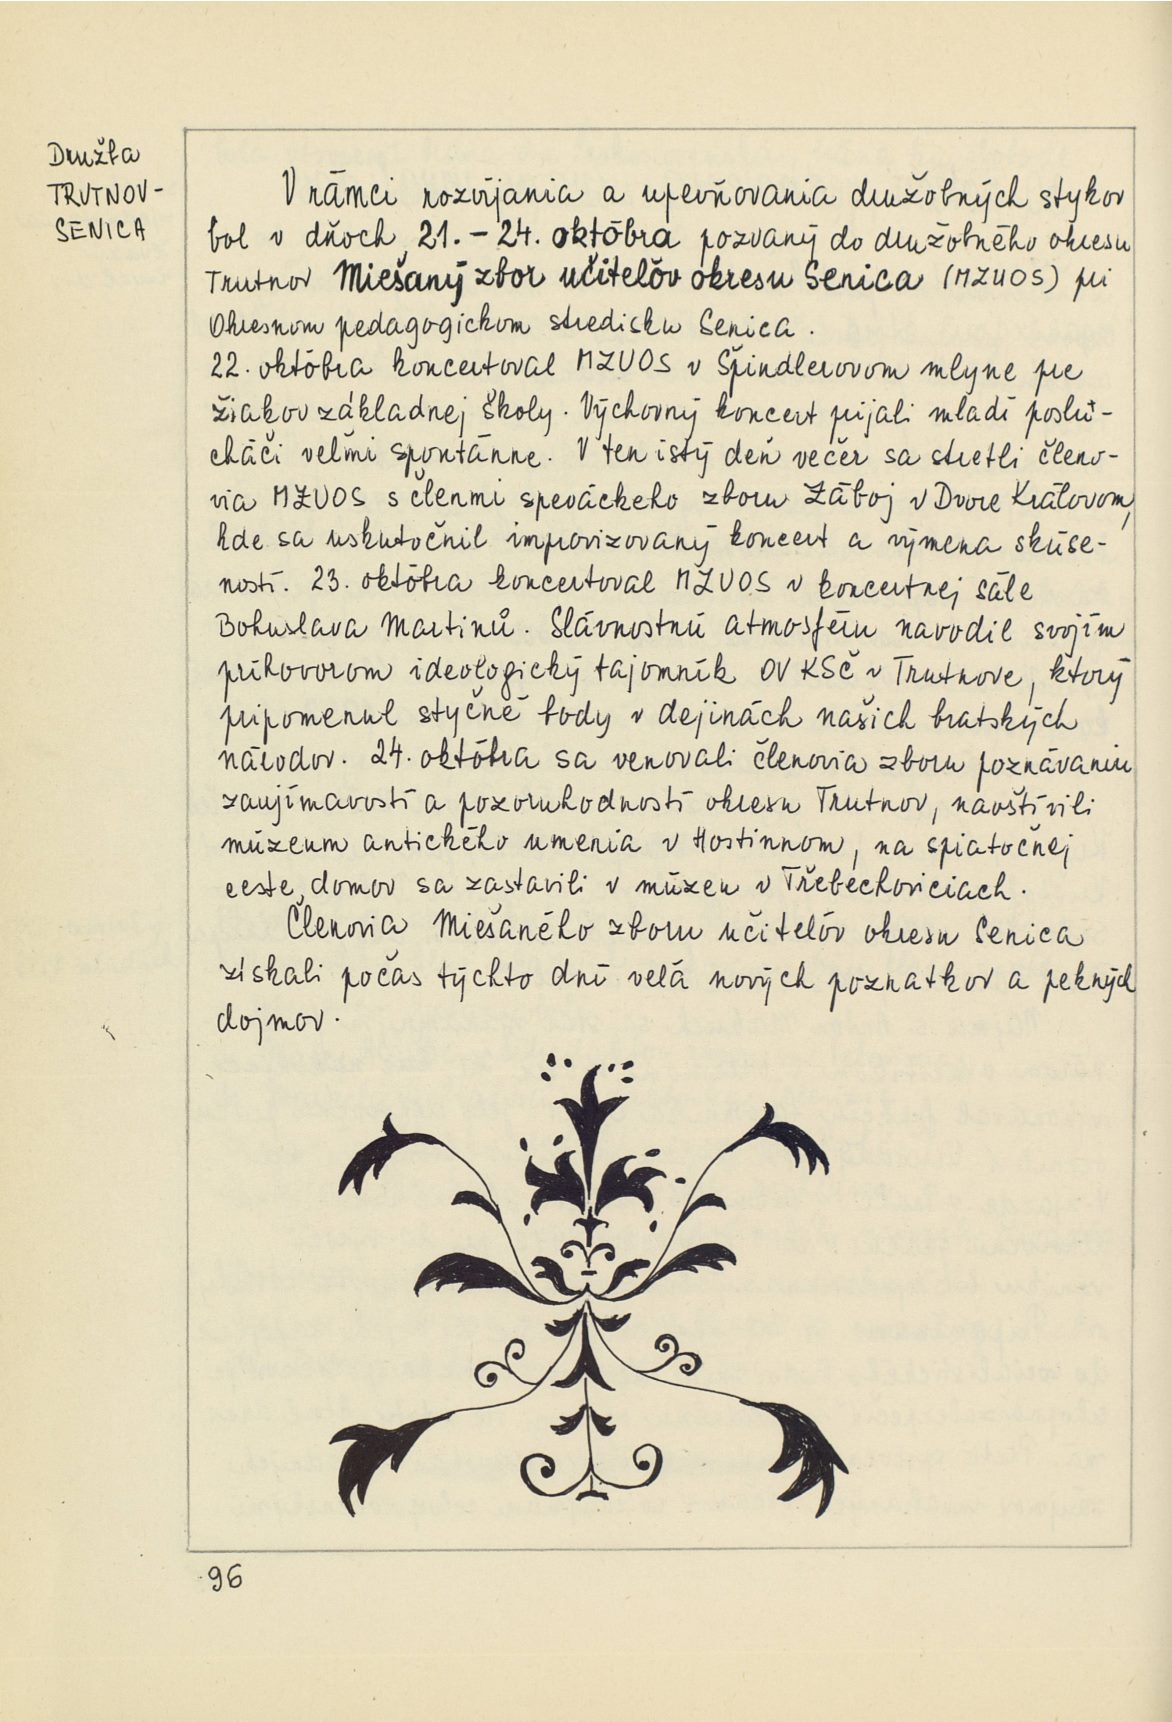 Družba
TRUTNOV-
SENICA
V rámci rozvíjania a upevňovania družobných stykov
bol v dňoch 21. - 24. októbra pozvaný do družobného okresu
Trutnov Miešaný zbor učiteľov okresu Senica (MZUOS) pri
Okresnom pedagogickom stredisku Senica.
22. októbra koncertoval MZUOS v Špindlerovom mlyne pre
žiakov základnej školy. Výchovný koncert prijali mladí poslu-
cháči veľmi spontánne. V ten istý deň večer sa stretli členo-
via MZUOS s členmi speváckeho zboru Záboj v Dvore Královom,
kde sa uskutočnil improvizovaný koncert a výmena skúse-
ností. 23. októbra koncertoval MZUOS v koncertnej sále
Bohuslava Martinů. Slávnostnú atmosféru navodil svojím
príhovorom ideologický tajomník OV KSČ v Trutnove, ktorý
pripomenul styčné body v dejinách našich bratských
národov. 24. októbra sa venovali členovia zboru poznávaniu
zaujímavostí a pozoruhodností okresu Trutnov, navštívili
múzeum antického umenia v Hostinnom, na spiatočnej
ceste domov sa zastavili v múzeu v Třebechoviciach.
Členovia Miešaného zboru učiteľov okresu Senica
získali počas týchto dní veľa nových poznatkov a pekných
dojmov.
96